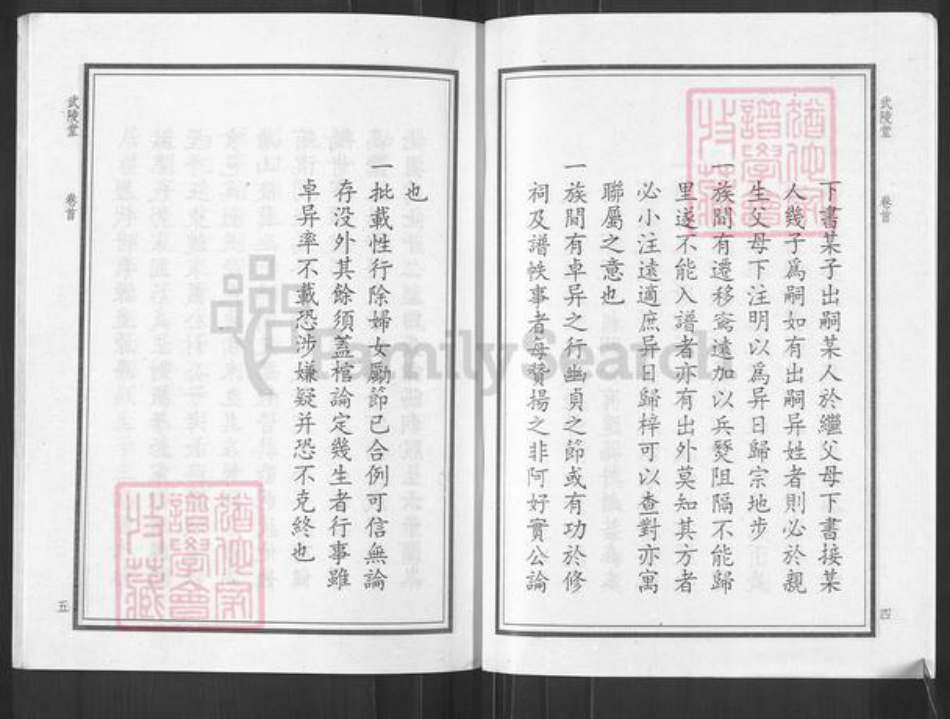 武陵堂
卷首
四
下書某子出嗣某人於繼父母下書接某
人幾子爲嗣如有出嗣异姓者則必於親
生父母下注明以爲异日歸宗地步
一族間有遷移窎遠加以兵燹阻隔不能歸
里遂不能入譜者亦有出外莫知其方者
必小注遠適庶异日歸梓可以查對亦寓
聯屬之意也
一族間有卓异之行幽貞之節或有功於修
祠及譜帙事者每贊揚之非阿好實公論
也
一批載性行除婦女勵節已合例可信無論
存没外其餘須蓋棺論定幾生者行事雖
卓异率不載恐涉嫌疑并恐不克終也
武陵堂
卷首
五
FamilySearch